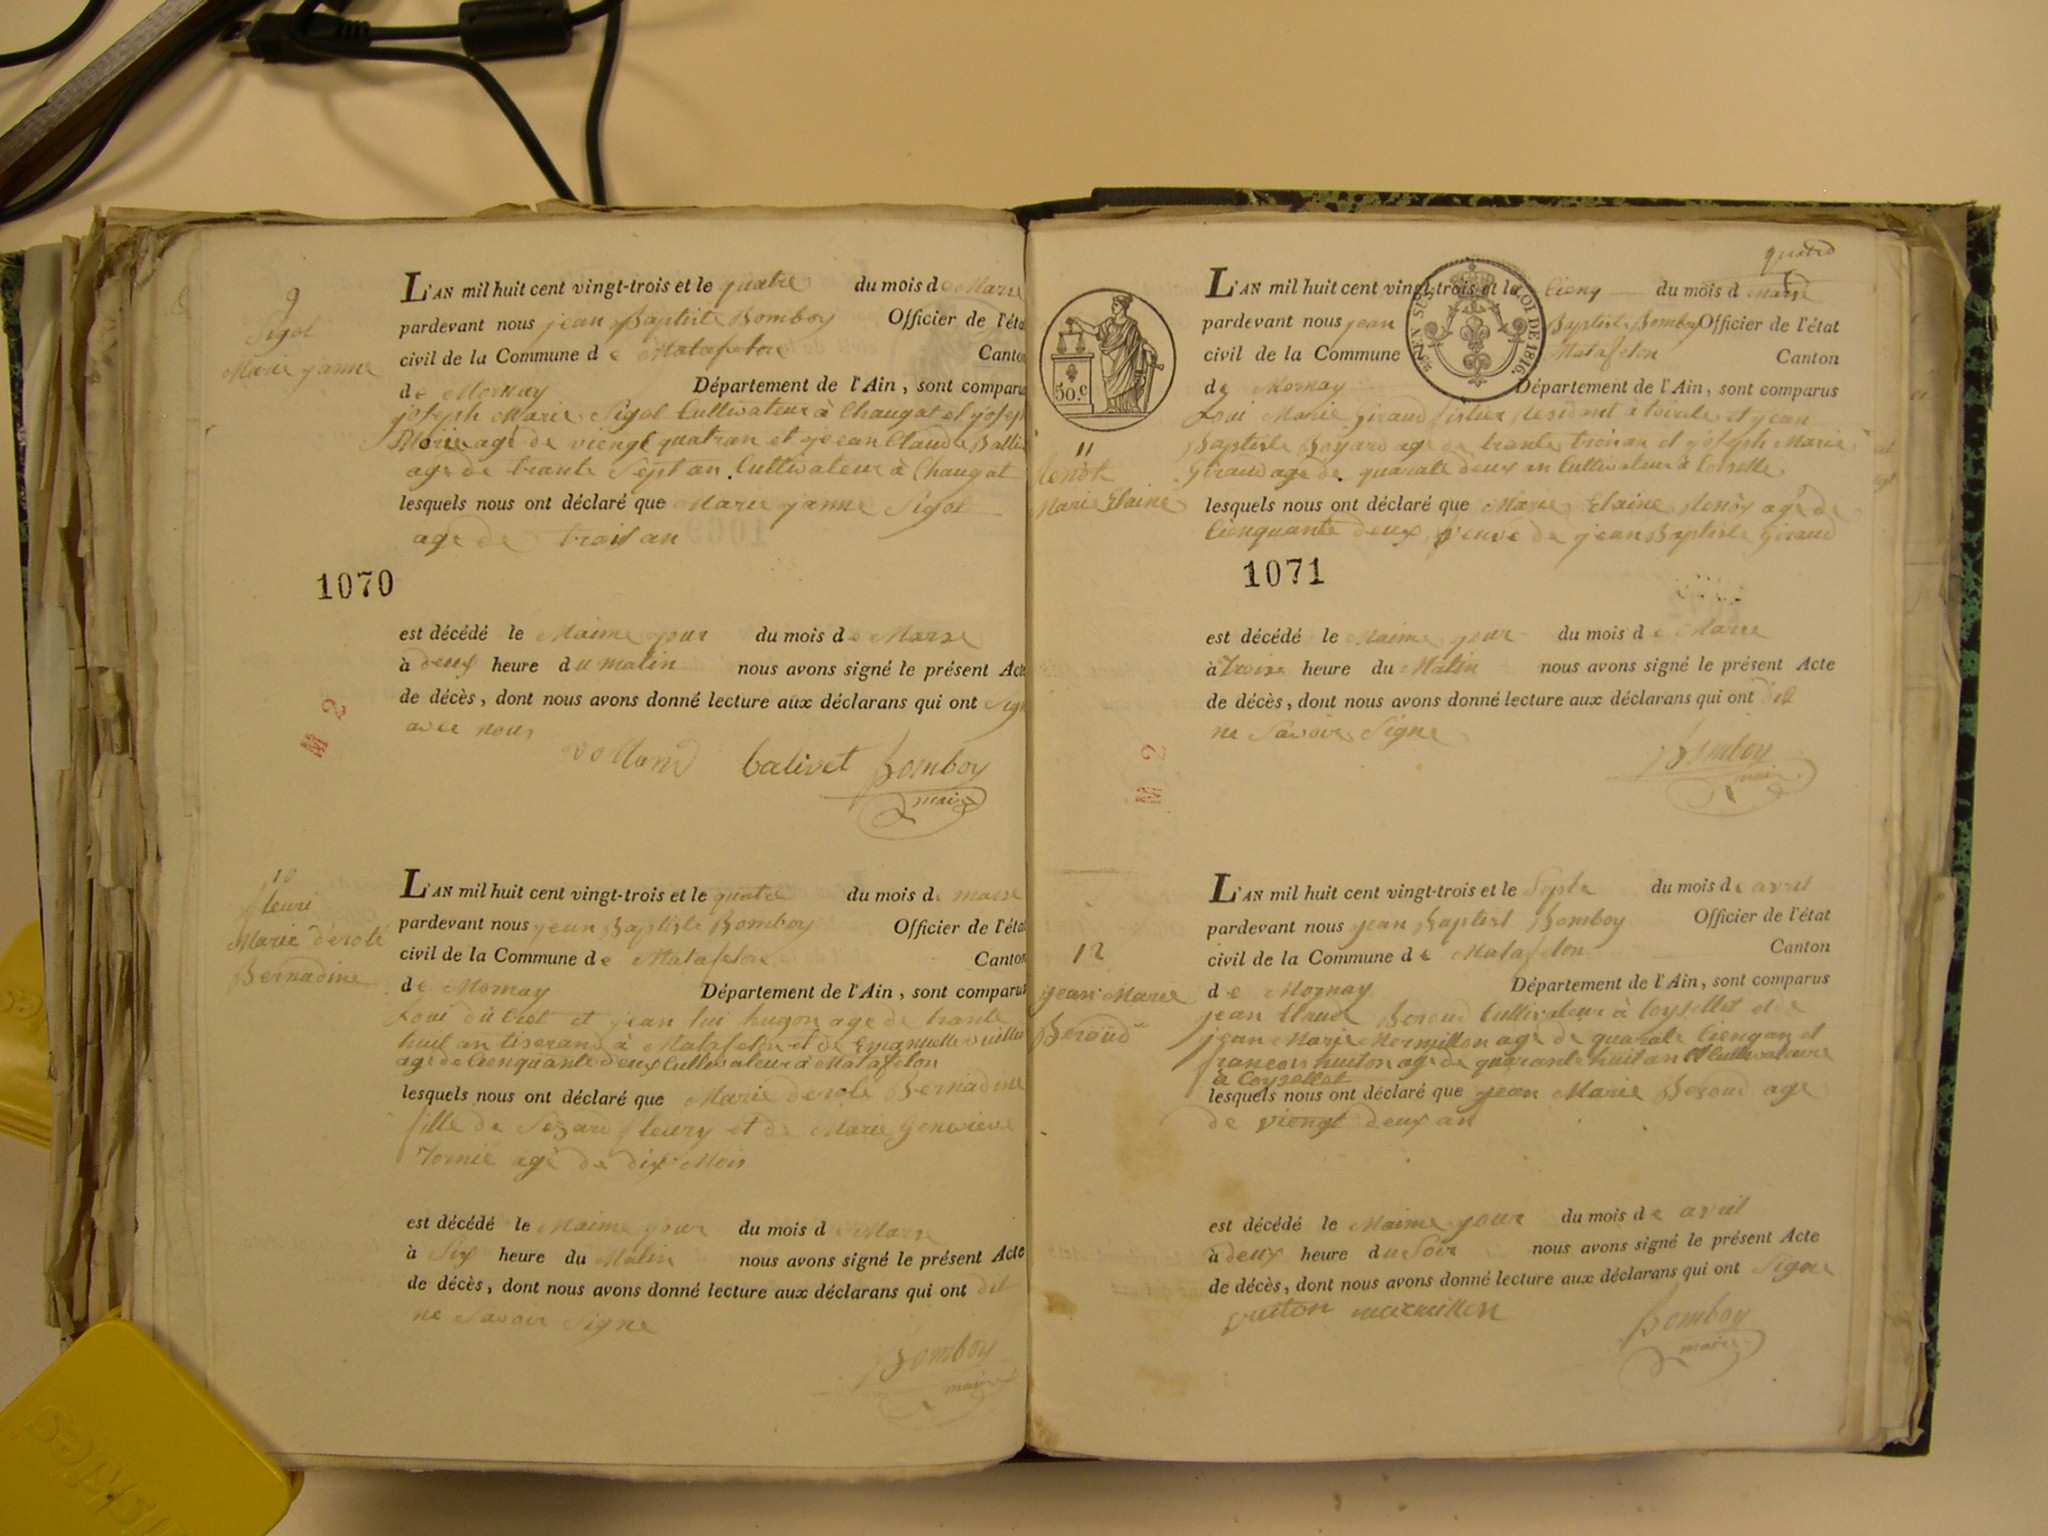 9
Sigol
Marie janne
L'AN mil huit cent vingt-trois et le quatre du mois de Marse
pardevant nous jean Baptiste Bomboy Officier de l'éta
civil de la Commune de Matafelon Canton
de Mornay Département de l'Ain, sont comparu
joseph Marie Sigol Cultivateur à Chaugat et josep
Marie agé de viengt quatran et jean Claude Balli
age de trante Sept an Cultivateur à Chaugat
lesquels nous ont déclaré que Marie janne Sigol
age de troisan
1070
est décédé le Maime jour du mois de Marse
à deux heure du matin nous avons signé le présent Acte
de décès, dont nous avons donné lecture aux déclarans qui ont Sign
avec nous
balivet Bomboy
maire
10
fleuri
Marie derolé
Bernadine
L'AN mil huit cent vingt-trois et le quatre du mois de marse
pardevant nous jean Baptiste Bomboy Officier de l'éta
civil de la Commune de Matafelon Canton
de Mornay Département de l'Ain, sont comparus
Loui du Crot et jean lui hugon age de trante
huit an tiserand à Matafelon et de Emanuelle
age de Cienquante deux Cultivateur à Matafelon
lesquels nous ont déclaré que Marie derolé Bernadine
fille de Sezare fleury et de Marie Genevieve
Tornié agé de dix Mois
est décédé le Maime jour du mois de Marse
à Six heure du Matin nous avons signé le présent Acte
de décès, dont nous avons donné lecture aux déclarans qui ont dit
ne Savoir Signe
Bomboy
maire
50.c
LOI DE 1816.
11
Marie Elaine
L'AN mil huit cent vingt-trois et le Cienq du mois de Marse
pardevant nous jean Baptiste Bomboy Officier de l'état
civil de la Commune Matafelon Canton
de Mornay Département de l'Ain, sont comparus
Loui Marie Giraud resident a et jean
Baptiste Boyard age de trante troisan et joseph Marie
Giraud age de quarate deux an Cultivateur à
lesquels nous ont déclaré que Marie Elaine age de
Cienquante deux veuve de jean Baptiste Giraud
1071
est décédé le Maime jour du mois de Marse
à Troise heure du Matin nous avons signé le présent Acte
de décès, dont nous avons donné lecture aux déclarans qui ont dit
ne Savoir Signe
Bomboy
maire
12
jean Marie
Beroud
L'AN mil huit cent vingt-trois et le Septe du mois de avril
pardevant nous jean Baptist Bomboy Officier de l'état
civil de la Commune de Matafelon Canton
de Mornay Département de l'Ain, sont comparus
jean Claud Beroud Cultivateur à Coysellet et de
jean Marie Mermillon age de quarate Cienqan et
francois huiton age de quarante huitan et Cultivateure
a Coysellet
lesquels nous ont déclaré que jean Marie Beroud age
de viengt deux an
est décédé le Maime jour du mois de avril
à deux heure du Soir nous avons signé le présent Acte
de décès, dont nous avons donné lecture aux déclarans qui ont Signe
vuiton mermillon Bomboy
maire